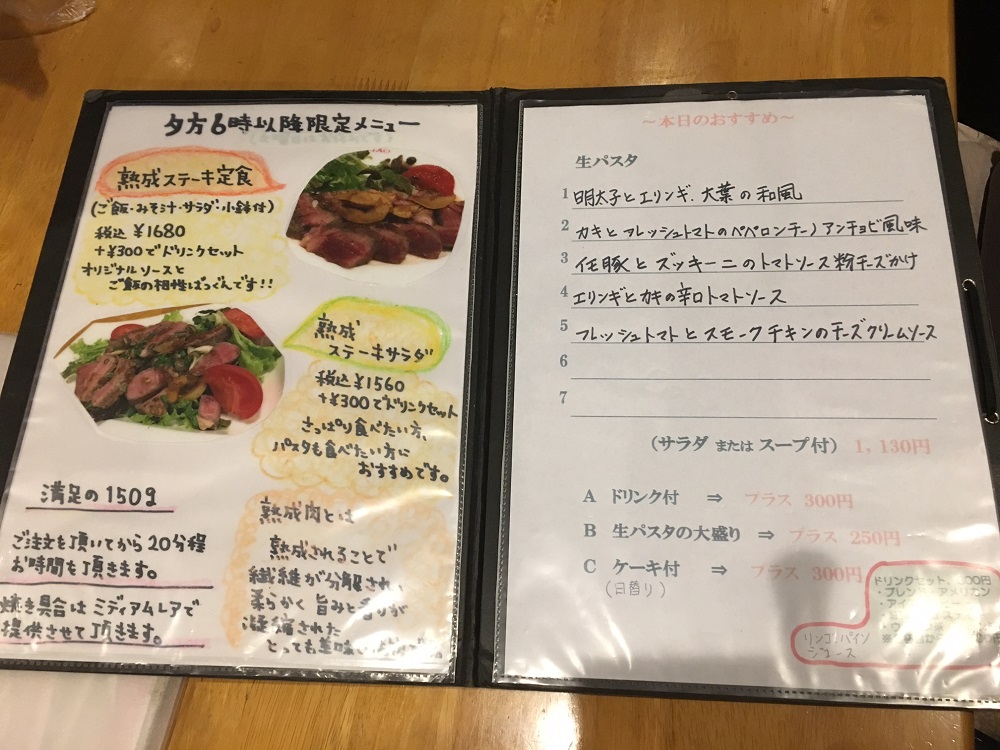 夕方6時以降限定メニュー
熟成ステーキ定食
(ご飯・みそ汁・サラダ・小鉢付)
税込 ¥1680
+¥300でドリンクセット
オリジナルソースと
ご飯の相性ばつぐんです!!
熟成
ステーキサラダ
税込¥1560
+¥300でドリンクセット
さっぱり食べたい方、
パスタも食べたい方に
おすすめです。
満足の150g
ご注文を頂いてから20分程
お時間を頂きます。
焼き具合はミディアムレアで
提供させて頂きます。
熟成肉とは
熟成されることで
繊維が分解され、
柔らかく旨みと香りが
凝縮された
とっても美味しい
～本日のおすすめ～
生パスタ
1 明太子とエリンギ、大葉の和風
2 カキとフレッシュトマトのペペロンチーノアンチョビ風味
3 イモ豚とズッキーニのトマトソース粉チーズかけ
4 エリンギとカキの辛口トマトソース
5 フレッシュトマトとスモークチキンのチーズクリームソース
6
7
(サラダ または スープ付) 1,130円
A ドリンク付 ⇒ プラス 300円
B 生パスタの大盛り ⇒ プラス 250円
C ケーキ付 ⇒ プラス 300円
(日替り)
ドリンクセット、300円
・ブレンド・アメリカン
リンゴ・パイン
ジュース